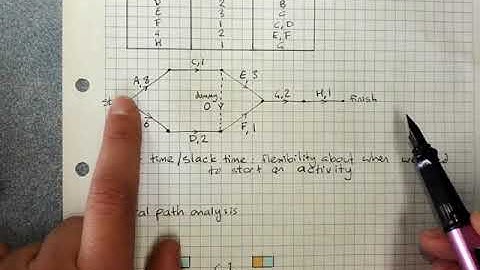 D 2 B
E 3 C
F 1 C, D
G 2 E, F
H 1 G
C, 1
A, 8
E, 3
dummy
0
G, 2
H, 1
finish
6
D, 2
F, 1
time/slack time: flexibility about when we
to start an activity
path analysis